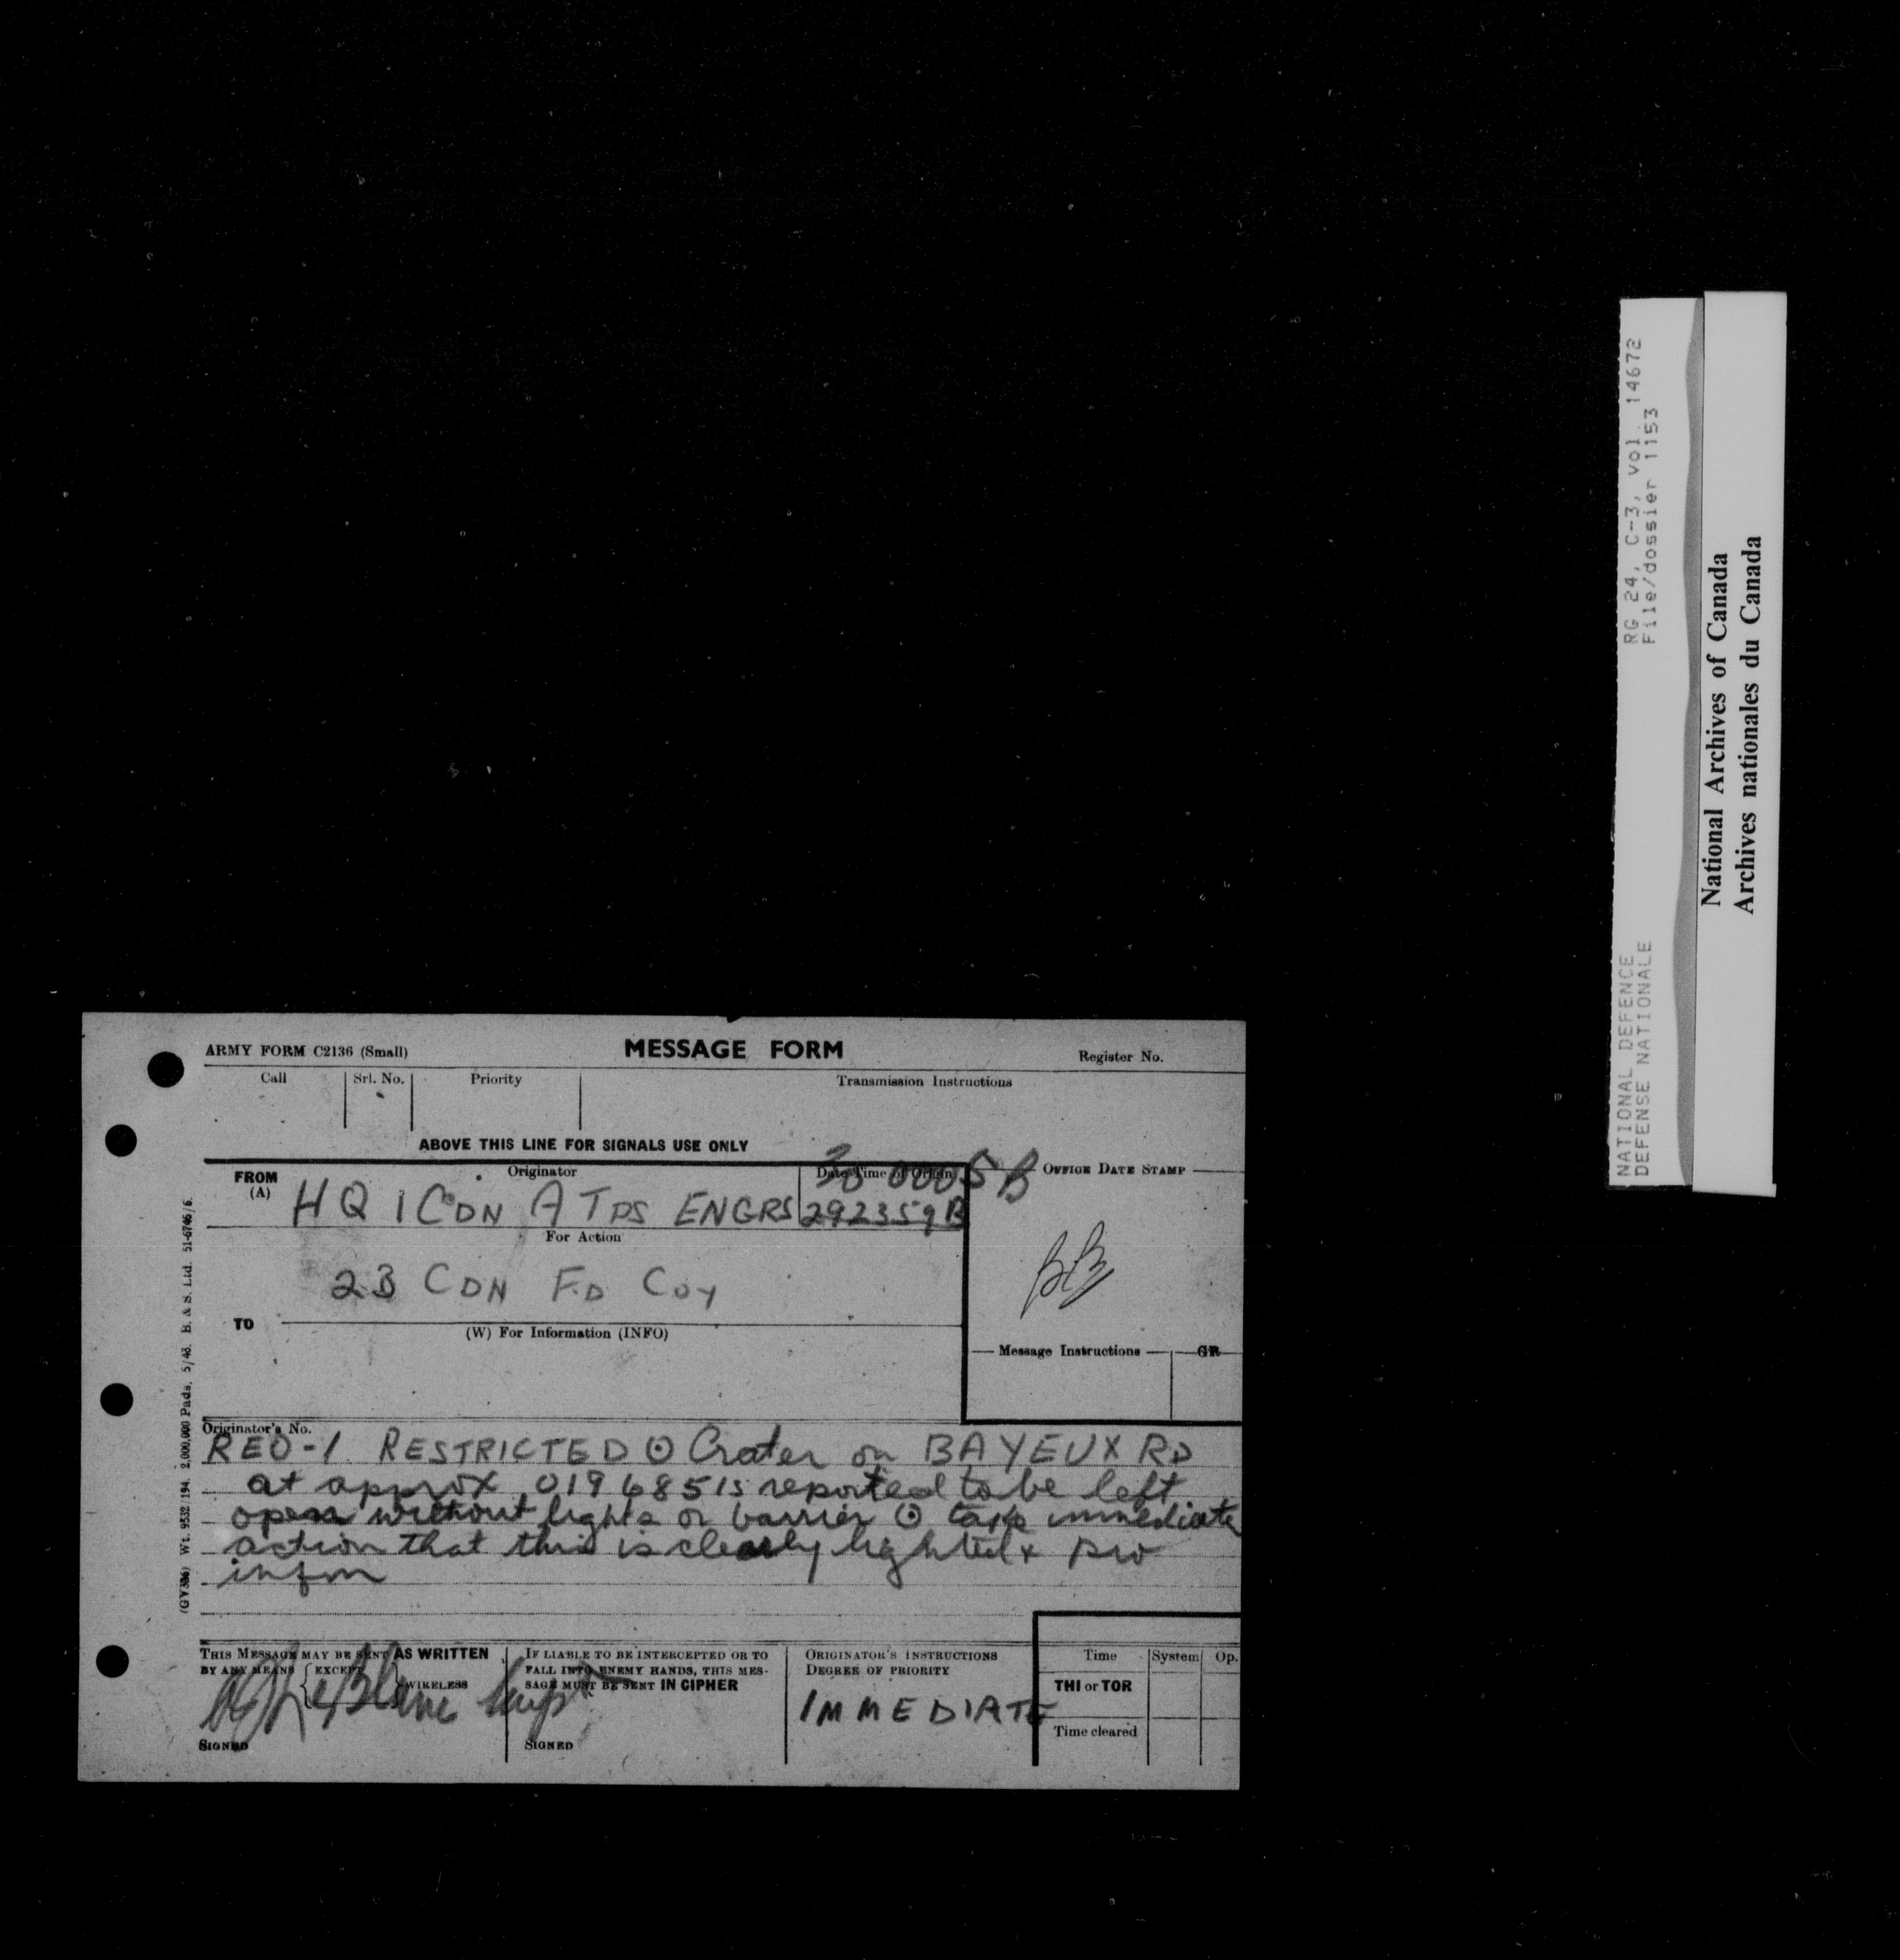 ARMY FORM C2136 (Small)
MESSAGE FORM
Register No.
Call
Srl. No.
Priority
Transmission Instructions
ABOVE THIS LINE FOR SIGNALS USE ONLY
FROM
(A)
Originator
Date-Time of Origin
30 0005 B
OFFICE DATE STAMP
HQ 1 CDN A TPS ENGRS
292359B
For Action
23 CDN FD COY
TO
(W) For Information (INFO)
Message Instructions
GR
Originator's No.
REO-1 RESTRICTED ⊙ Crater on BAYEUX RD
at approx 019685 is reported to be left
open without lights or barrier ⊙ take immediate
action that this is clearly lighted
infm
THIS MESSAGE MAY BE SENT AS WRITTEN
BY ANY MEANS { EXCEPT } WIRELESS
SIGNED
IF LIABLE TO BE INTERCEPTED OR TO
FALL INTO ENEMY HANDS, THIS MES-
SAGE MUST BE SENT IN CIPHER
SIGNED
ORIGINATOR'S INSTRUCTIONS
DEGREE OF PRIORITY
IMMEDIATE
Time
System
Op.
THI or TOR
Time cleared
2,000,000 Pads. 5/43. B. & S. Ltd. 51-6746/6.
NATIONAL DEFENCE
DEFENSE NATIONALE
RG 24, C-3, vol. 14672
File/dossier 1153
National Archives of Canada
Archives nationales du Canada